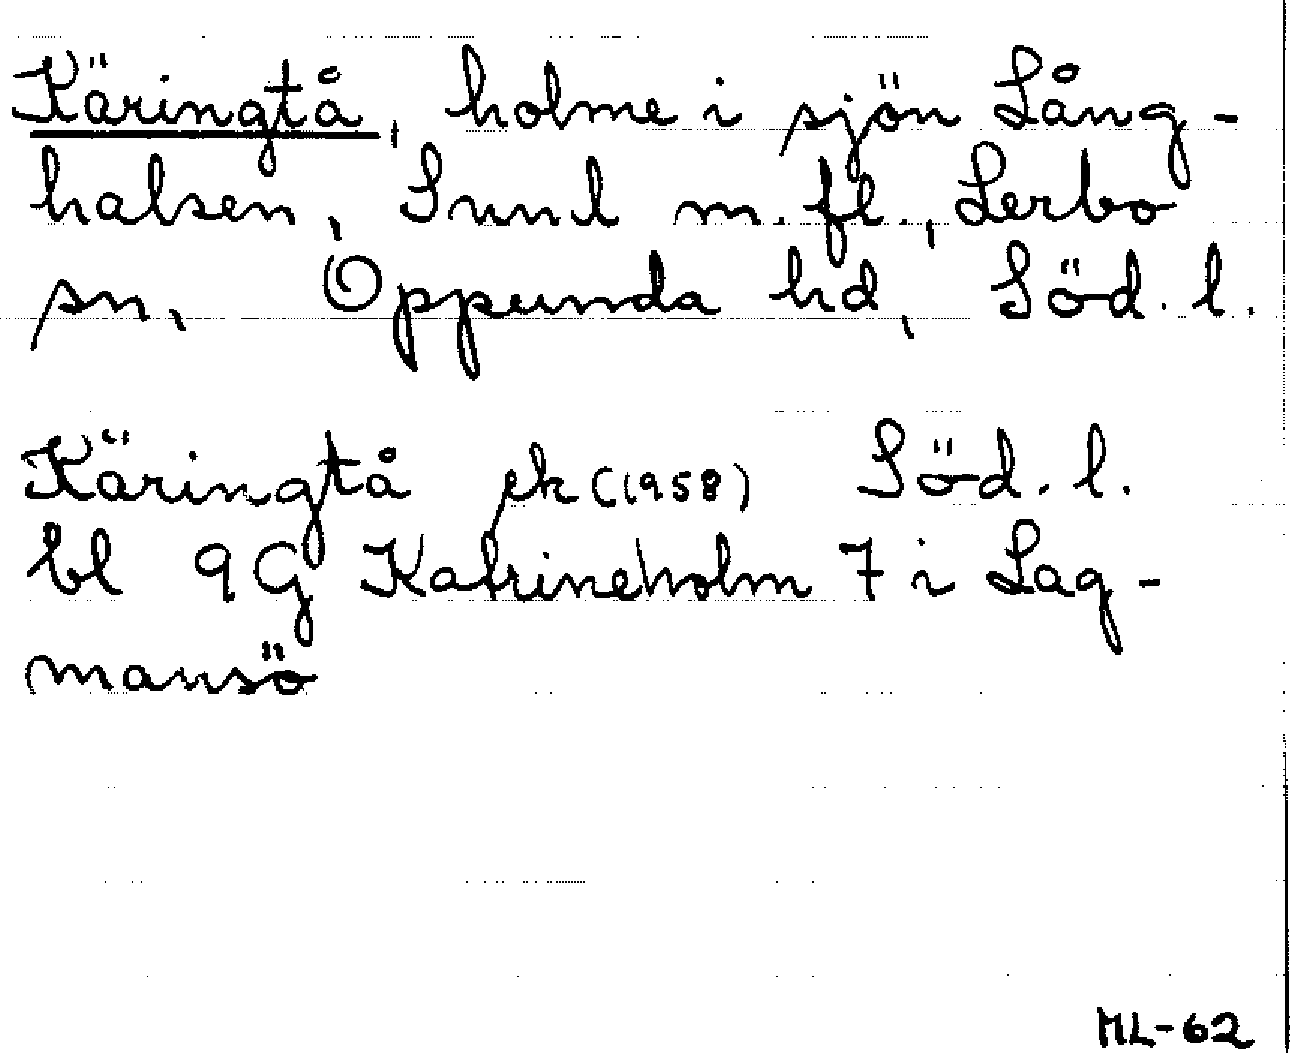 Käringtå, holme i sjön Lång-
halsen, Sund m.fl., Lerbo
sn, Oppunda hd, Söd. l.
Käringtå ek (1958) Söd. l.
bl 9G Katrineholm 7 i Lag-
mansö
ML-62